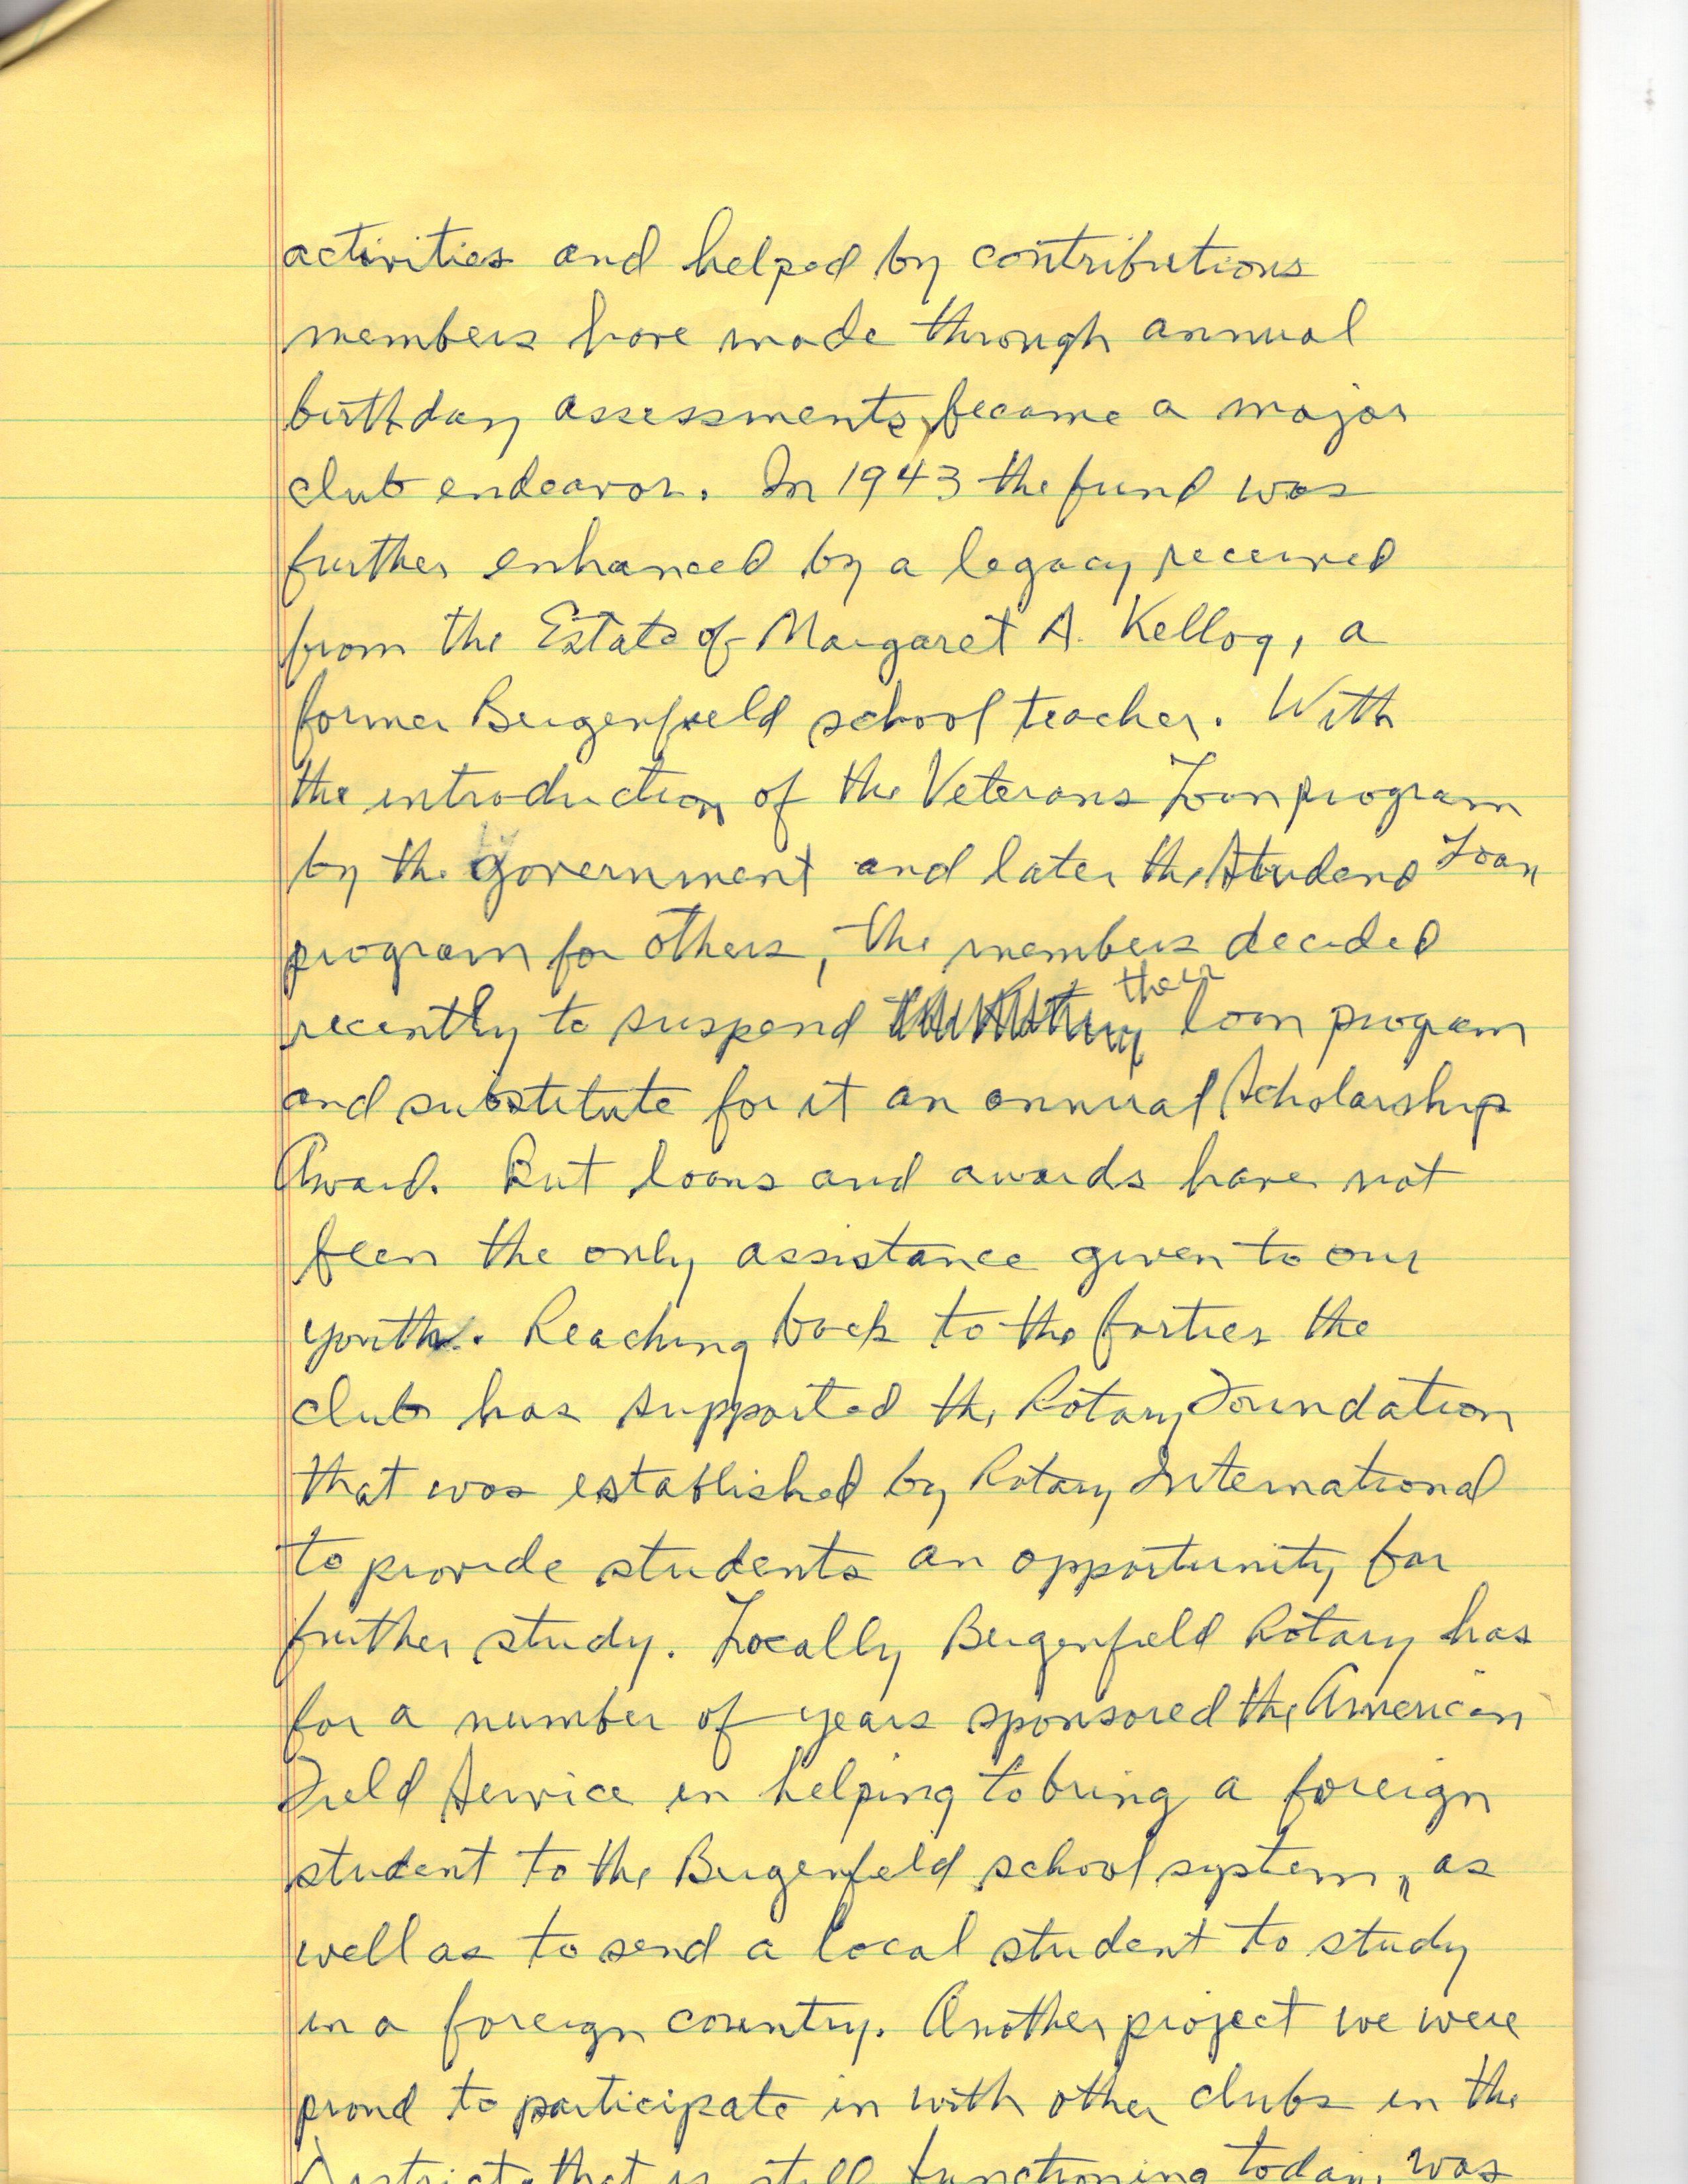 activities and helped by contributions
members have made through annual
birthday assessments, became a major
club endeavor. In 1943 the fund was
further enhanced by a legacy received
from the Estate of Margaret A. Kellog, a
former Bergenfield school teacher. With
the introduction of the Veterans Loan program
by the government and later the Student Loan
program for others, the members decided
recently to suspend their loan program
and substitute for it an annual Scholarship
Award. But loans and awards have not
been the only assistance given to our
youth. Reaching back to the forties the
club has supported the Rotary Foundation
that was established by Rotary International
to provide students an opportunity for
further study. Locally Bergenfield Rotary has
for a number of years sponsored the American
Field Service in helping to bring a foreign
student to the Bergenfield school system, as
well as to send a local student to study
in a foreign country. Another project we were
proud to participate in with other clubs in the
District that is still functioning today, was